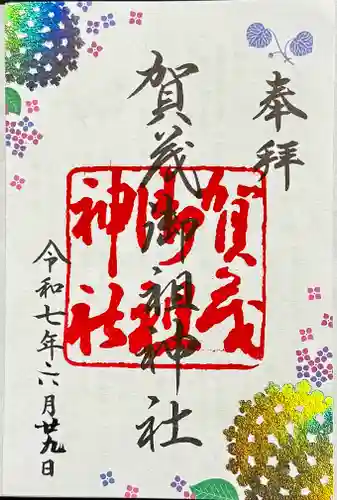 奉拝
賀茂御祖神社
賀茂
御祖
神社
令和七年六月廿九日